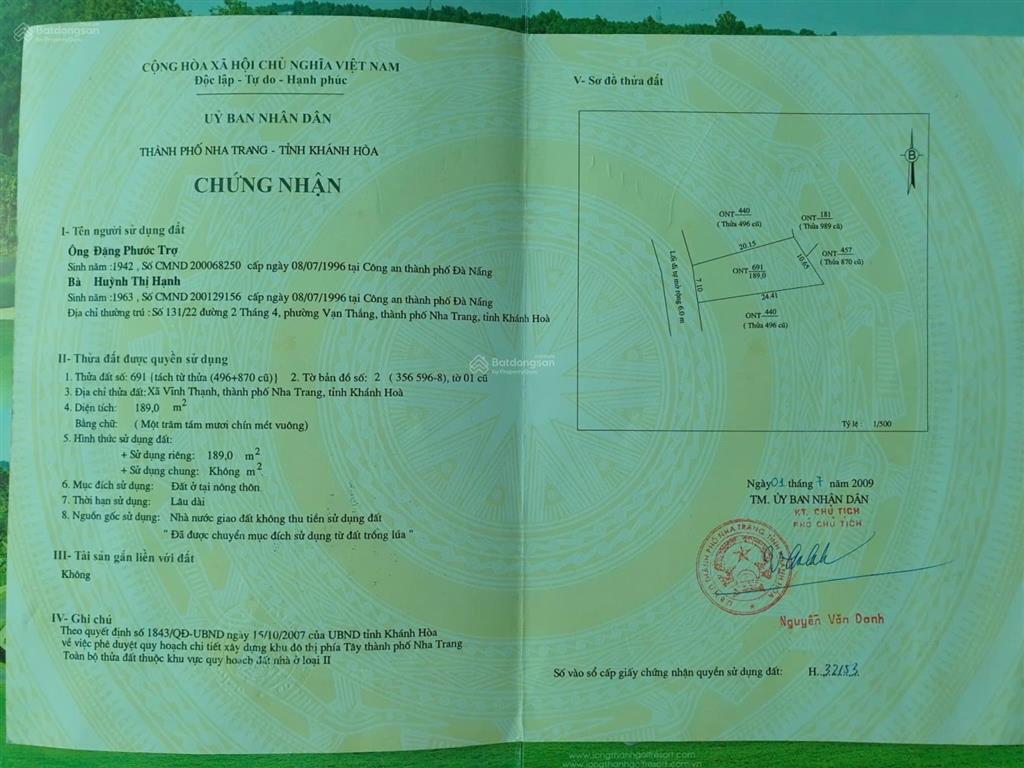 Batdongsan
by PropertyGuru
CỘNG HÒA XÃ HỘI CHỦ NGHĨA VIỆT NAM
Độc lập - Tự do - Hạnh phúc
UỶ BAN NHÂN DÂN
THÀNH PHỐ NHA TRANG - TỈNH KHÁNH HÒA
CHỨNG NHẬN
I- Tên người sử dụng đất
Ông Đặng Phước Trợ
Sinh năm :1942 , Số CMND 200068250 cấp ngày 08/07/1996 tại Công an thành phố Đà Nẵng
Bà Huỳnh Thị Hạnh
Sinh năm :1963 , Số CMND 200129156 cấp ngày 08/07/1996 tại Công an thành phố Đà Nẵng
Địa chỉ thường trú : Số 131/22 đường 2 Tháng 4, phường Vạn Thắng, thành phố Nha Trang, tỉnh Khánh Hoà
II- Thửa đất được quyền sử dụng
1. Thửa đất số: 691 {tách từ thửa (496+870 cũ)} 2. Tờ bản đồ số: 2 ( 356 596-8), tờ 01 cũ
3. Địa chỉ thửa đất: Xã Vĩnh Thạnh, thành phố Nha Trang, tỉnh Khánh Hoà
4. Diện tích: 189,0 m2
Bằng chữ: ( Một trăm tám mươi chín mét vuông)
5. Hình thức sử dụng đất:
+ Sử dụng riêng: 189.0 m2
+ Sử dụng chung: Không m2
6. Mục đích sử dụng: Đất ở tại nông thôn
7. Thời hạn sử dụng: Lâu dài
8. Nguồn gốc sử dụng: Nhà nước giao đất không thu tiền sử dụng đất
" Đã được chuyển mục đích sử dụng từ đất trồng lúa "
III- Tài sản gắn liền với đất
Không
IV- Ghi chú
Theo quyết định số 1843/QĐ-UBND ngày 15/10/2007 của UBND tỉnh Khánh Hòa
về việc phê duyệt quy hoạch chi tiết xây dựng khu đô thị phía Tây thành phố Nha Trang
Toàn bộ thửa đất thuộc khu vực quy hoạch đất nhà ở loại II
V- Sơ đồ thửa đất
B
ONT 440
( Thửa 496 cũ)
ONT 181
( Thửa 989 cũ)
ONT 457
(Thửa 870 cũ)
20.15
10.65
ONT 691
189,0
7.10
24.41
ONT 440
(Thửa 496 cũ)
Lối đi tự mở rộng 6.0 m
Tỷ lệ : 1/500
Ngày 01 tháng 7 năm 2009
TM. ỦY BAN NHÂN DÂN
KT. CHỦ TỊCH
PHÓ CHỦ TỊCH
Nguyễn Văn Danh
Số vào sổ cấp giấy chứng nhận quyền sử dụng đất: H..32153.
Batdongsan
by PropertyGuru
Batdongsan
by PropertyGuru
www.longthanhgolfresort.com
www.longthanhgolfresort.com.vn